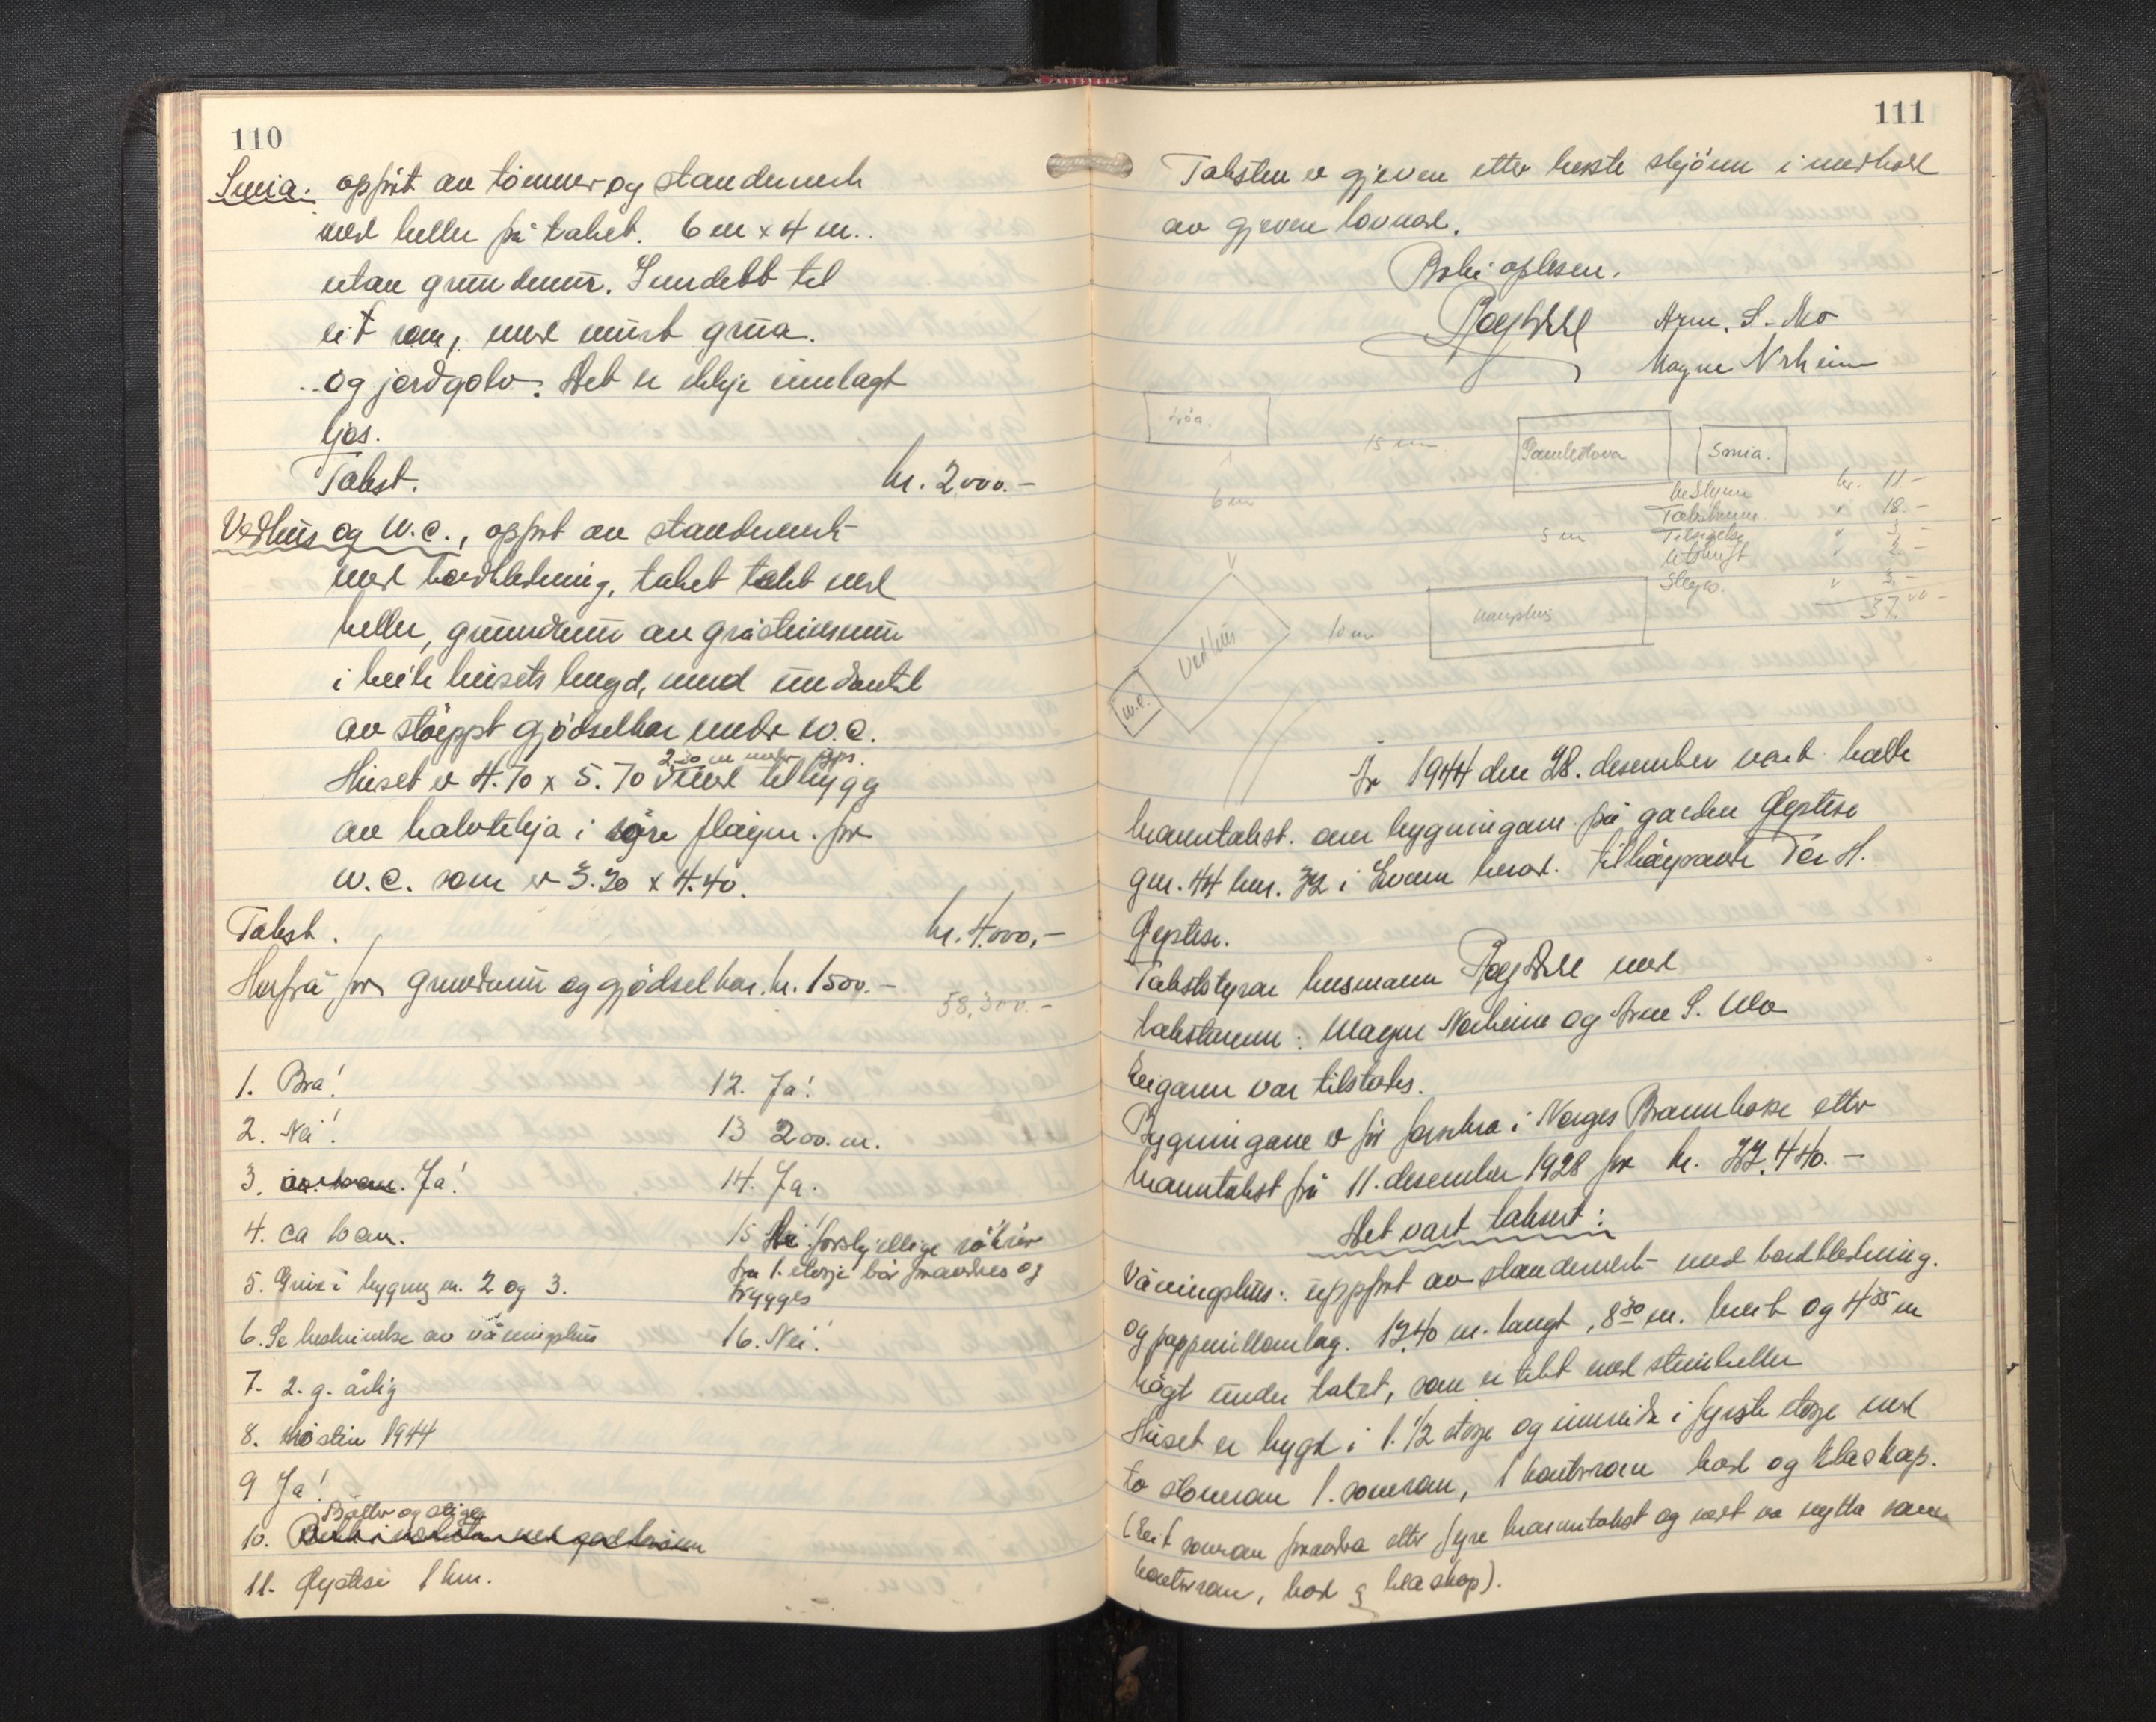 110
Smia. oppført av tømmer og standerverk
med heller på taket. 6 m x 4 m..
utan grunnmur. Inndelt til
eit rom, med murt grua.
og jordgolv. Det er ikkje innlagt
ljos.
Takst. kr. 2000.-
Vedhus og W.C., oppført av standerverk
med bordkledning, taket tekt med
heller, grunnmur av gråsteinsmur
i heile husets lengd, med
av støypt gjødselkar under W.C.
2.20 m under gps.
Huset er 4.70 x 5.70 med tilbygg
av halvtekja i søre fløyen. for
W.C. som er 3.20 x 4.40.
Takst. kr. 4.000,-
Herfrå for grunnmur og gjødselkar. kr. 1500.-
58,300.-
1. Bra!
2. Nei!
3. Ja!
4. ca 60 cm.
5. Grue i bygning nr. 2 og 3.
6. Se beskrivelse av våningshus
7. 2. g. årlig
8. Hösten 1944
9 Ja!
Bøtter og stige
10.
11. Øystese 1 km.
12. Ja!
13 200. m.
14. Ja.
15 Nei! forskjellige rökrör
fra 1. etasje bör forandres og
trygges
16. Nei!
111
Taksten er gjeven etter beste skjönn i medhald
av gjeven lovnad.
Boki opplesen.
Arne. S. Mo
Magne Norheim
Löa.
15 m
Sambustova
Smia.
6 m
5 m
kr. 11.-
Takstmenn. " 18.-
" 3.-
Utskrift " 2.-
" 3.-
37.00-
Vedhus
W.C.
10 m
vaaningshus
År 1944 den 28. desember vart halde
branntakst. over bygningane på garden Øystese
gnr. 44 bnr. 32 i Kvam herad. tilhøyrande Tor H.
Øystese.
Takststyrar lensmann med
takstmenn: Magne Norheim og Arne S. Mo
Eigaren var tilstades.
Bygningane er før forsikra i Norges Brannkasse etter
branntakst frå 11. desember 1928 for kr. 22.440.-
Det vart taksert:
Våningshus: uppført av standerverk med bordkledning.
og pappmillomlag. 12.40 m. langt, 8.30 m. breit og 4.35 m
høgt under taket, som er tekt med steinheller
Huset er bygd i 1. 1/2 etasje og innreidt i fyrste etasje med
to stoverom 1. soverom, 1 kontorrom bad og kleskap.
(Eit soverom forandra etter fyre branntakst og vert no nytta som
kontorrom, bad & kleskap).